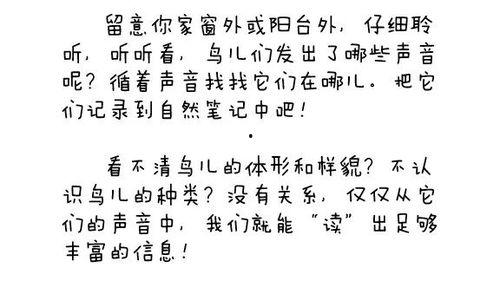 留意你家窗外或阳台外，仔细聆
听，听听看，鸟儿们发出了哪些声音
呢？循着声音找找它们在哪儿。把它
们记录到自然笔记中吧！
看不清鸟儿的体形和样貌？不认
识鸟儿的种类？没有关系，仅仅从它
们的声音中，我们就能“读”出足够
丰富的信息！